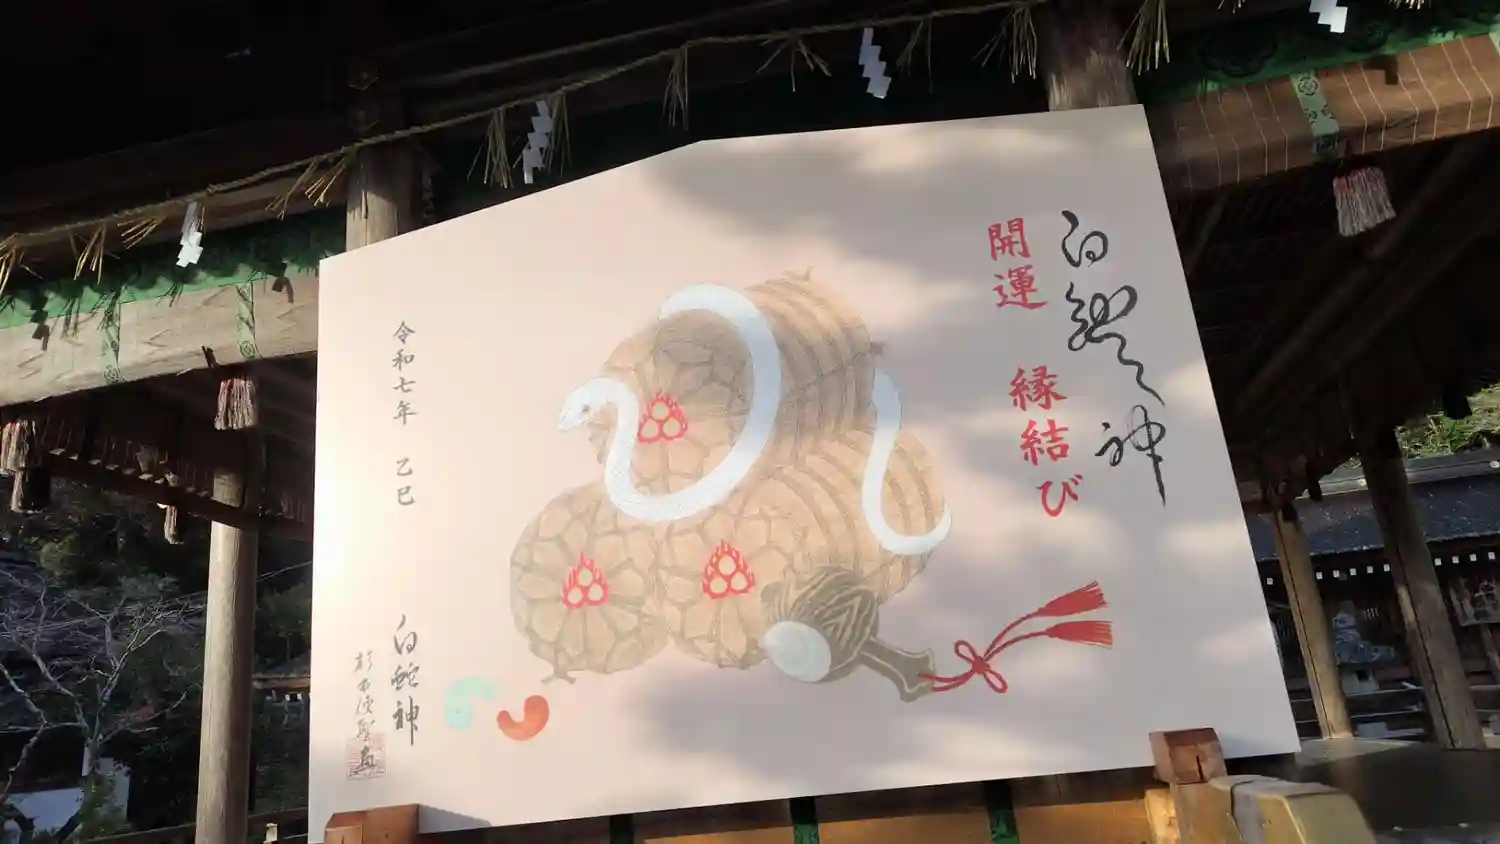 白蛇之神
開運 縁結び
令和七年 乙巳
白蛇神